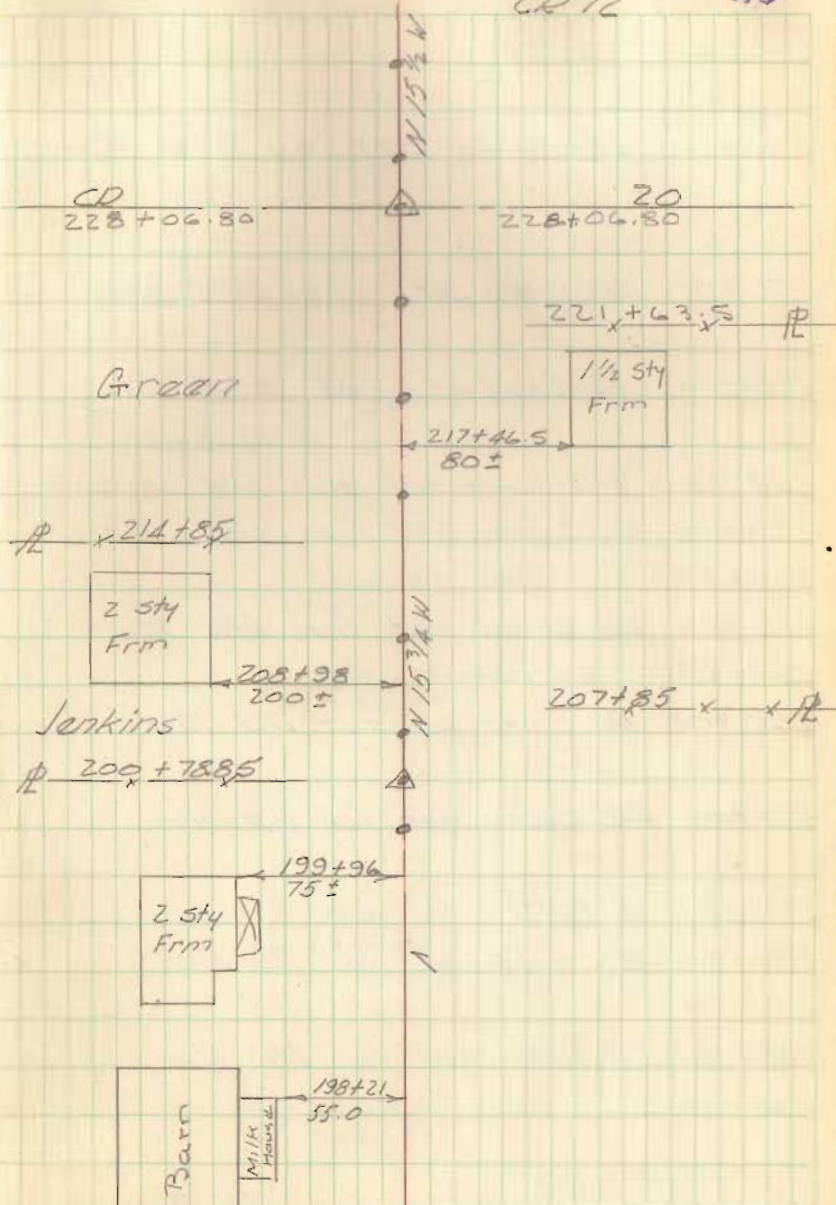 CR 16
N 15 1/2 W
CD 20
228+06.80 228+06.80
221+63.5 PL
1 1/2 Sty
Frm
Green
217+46.5
80±
PL 214+85
2 Sty
Frm
N 15 3/4 W
208+98
200±
207+85 PL
Jenkins
PL 200+78.85
199+96
75±
2 Sty
Frm
198+21
55.0
Milk
House
Barn